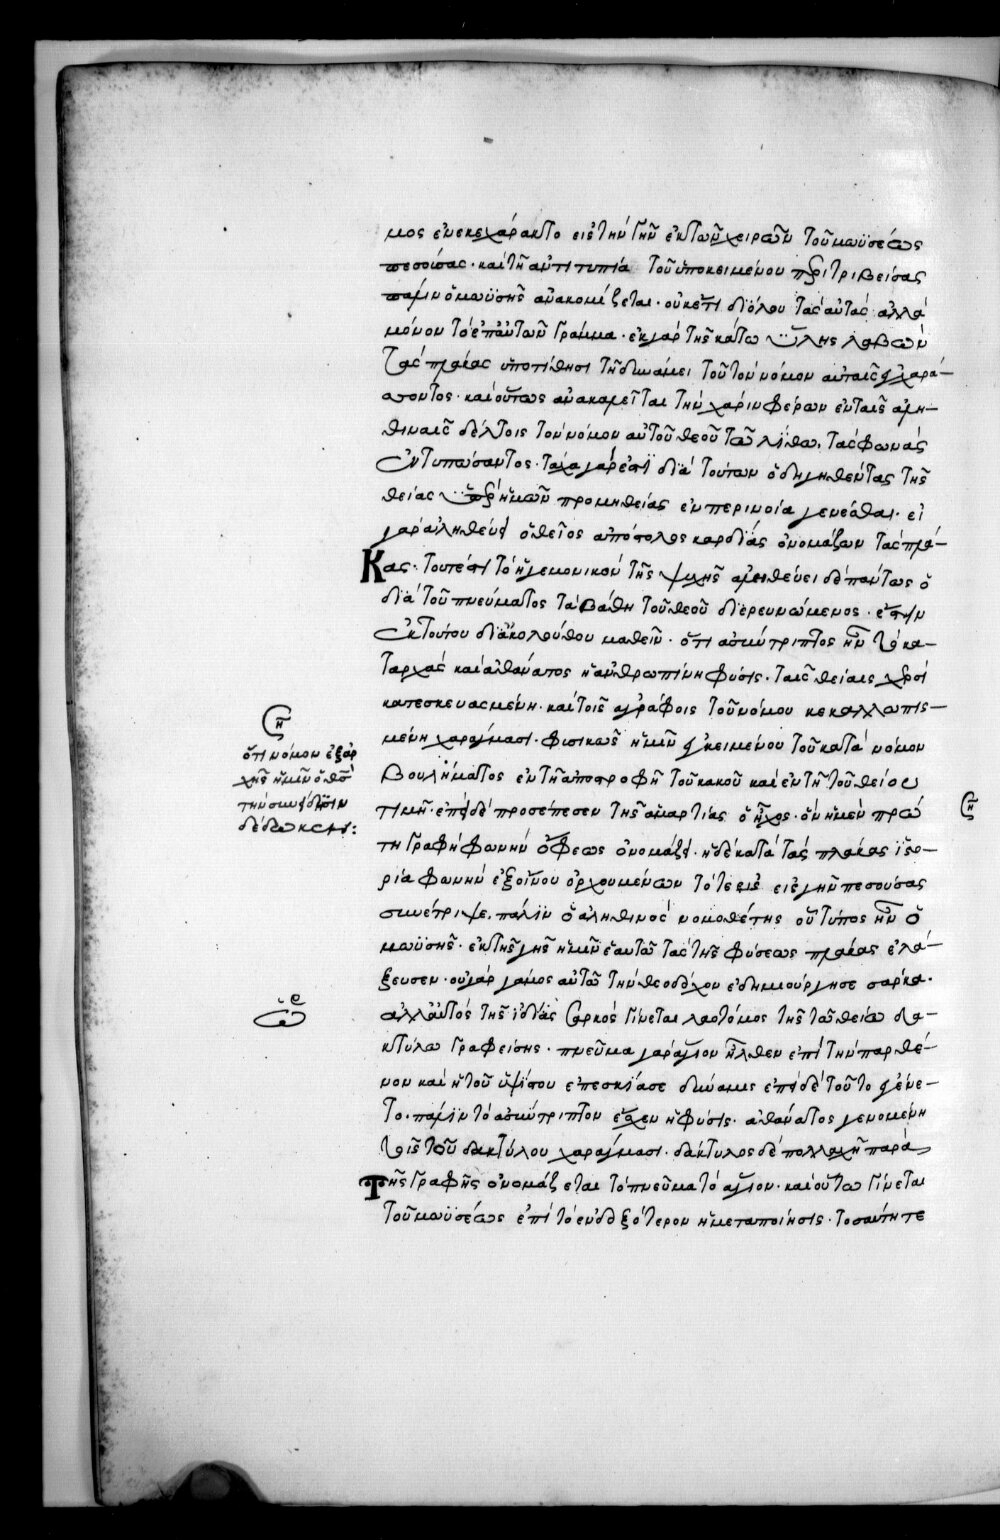 μος ἐνεκεχάρακτο εἰς τὴν γῆν ἐκ τῶν χειρῶν τοῦ μωϋσέως
πεσούσας· καὶ τῆ ἀντιτυπία τοῦ ὑποκειμένου περιτριβείσας
πάλιν ὁ μωϋσῆς ἀνακομίζεται· οὐκέτι διόλου τὰς αὐτὰς ἀλλὰ
μόνον τὸ ἐπ' αὐτῶν γράμμα· ἐκ γὰρ τῆς κάτω ὕλης λαβὼν
τὰς πλάκας ὑποτίθησι τῆ δυνάμει τοῦ τὸν νόμον αὐταῖς ἐγχαρά–
αττοντος· καὶ οὕτως ἀνακαλεῖται τὴν χάριν φέρων ἐν ταῖς λη–
θίναις δέλτοις τὸν νόμον αὐτοῦ θεοῦ τῶ λίθω, τὰς φωνὰς
ἐντυπώσαντος· τάχα γάρ ἐστι διὰ τούτων ὁδηγηθέντας τῆς
θείας ὑπὲρ ἡμῶν προμηθείας ἐν περινοία γενέσθαι· εἰ
γὰρ ἀληθεύει ὁ θεῖος ἀπόστολος καρδίας ὀνομάζων τὰς πλά–
Κας· τουτέστι τὸ ἡγεμονικὸν τῆς ψυχῆς ἀληθεύει δὲ πάντως ὁ
διὰ τοῦ πνεύματος τὰ βάθη τοῦ θεοῦ διερευνώμενος· ἔστιν
ἐκ τούτου διακολούθου μαθεῖν· ὅτι ἀσύντριπτος ἦν τὸ κα–
ταρχὰς καὶ ἀθάνατος ἡ ἀνθρωπίνη φύσις· ταῖς θείαις χερσὶ
κατεσκευασμένη· καὶ τοῖς ἀγράφοις τοῦ νόμου κεκαλλωπις–
μένη χαράγμασι· φυσικῶς ἡμῖν ἐγκειμένου τοῦ κατὰ νόμον
βουλήματος ἐν τῆ ἀποστροφῆ τοῦ κακοῦ καὶ ἐν τῆ τοῦ θείου
τιμῆ· ἐπεὶ δὲ προσέπεσεν τῆς ἁμαρτίας ὁ ἦχος· ὃν ἡ μὲν πρώ
τη γραφὴ φωνὴν ὄφεως ὀνομάζει· ἡ δὲ κατὰ τὰς πλάκας ἱστο–
ρία φωνὴν ἐξοίνου ἀρχουμένων τότε εἰς γῆν πεσούσας
συνέτριψε. πάλιν ὁ ἀληθινὸς νομοθέτης οὗ τύπος ἦν ὁ
μωϋσῆς· ἐκ τῆς γῆς ἡμῖν ἑαυτῶ τὰς τῆς φύσεως πλάκας ἐλά–
ξευσεν· οὐ γὰρ γάμος αὐτῶ τὴν θεοδόχον ἐδημιούργησε σάρκα·
ἀλλ' αὐτὸς τῆς ἰδίας σαρκὸς γίνεται λαοτόμος τῆς τῶ θείω δα–
κτύλω γραφείσης· πνεῦμα γὰρ ἅγιον ἦλθεν ἐπὶ τὴν παρθέ–
νον καὶ ἡ τοῦ ὑψίστου ἐπεσκίασε δύναμις ἐπεὶ δὲ τοῦτο ἐγένε–
το· πάλιν τὸ ἀσύντριπτον ἔσχεν ἡ φύσις· ἀθάνατος γενομένη
τοῖς τοῦ δακτύλου χαράγμασι· δάκτυλος δὲ πολλαχῆ παρὰ
Τῆς γραφῆς ὀνομάζεται τὸ πνεῦμα τὸ ἅγιον· καὶ οὕτω γίνεται
τοῦ μωϋσέως ἐπὶ τὸ ἐνδοξότερον ἡ μεταποίησις· τοσαύτη τε
ση
ὅτι νόμον ἐξ ἀρ
χῆς ἡμῖν ὁ θσ
τὴν συνείδησιν
δέδωκεν:
ση
ὡρ